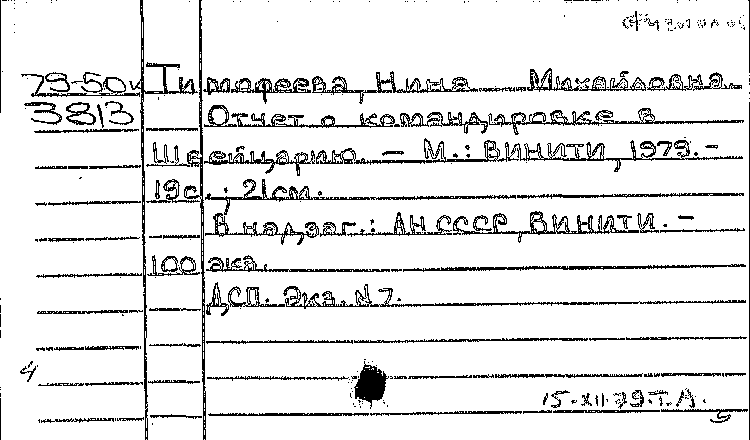 79-50к Тимофеева, Нина Михайловна.
3813 Отчет о командировке в
Швейцарию. – М.: ВИНИТИ, 1979. –
19с.; 21см.
В надзаг.: АН СССР, ВИНИТИ. –
100 экз.
ДСП. Экз. №7.
4
15.XII.79.Т.А.